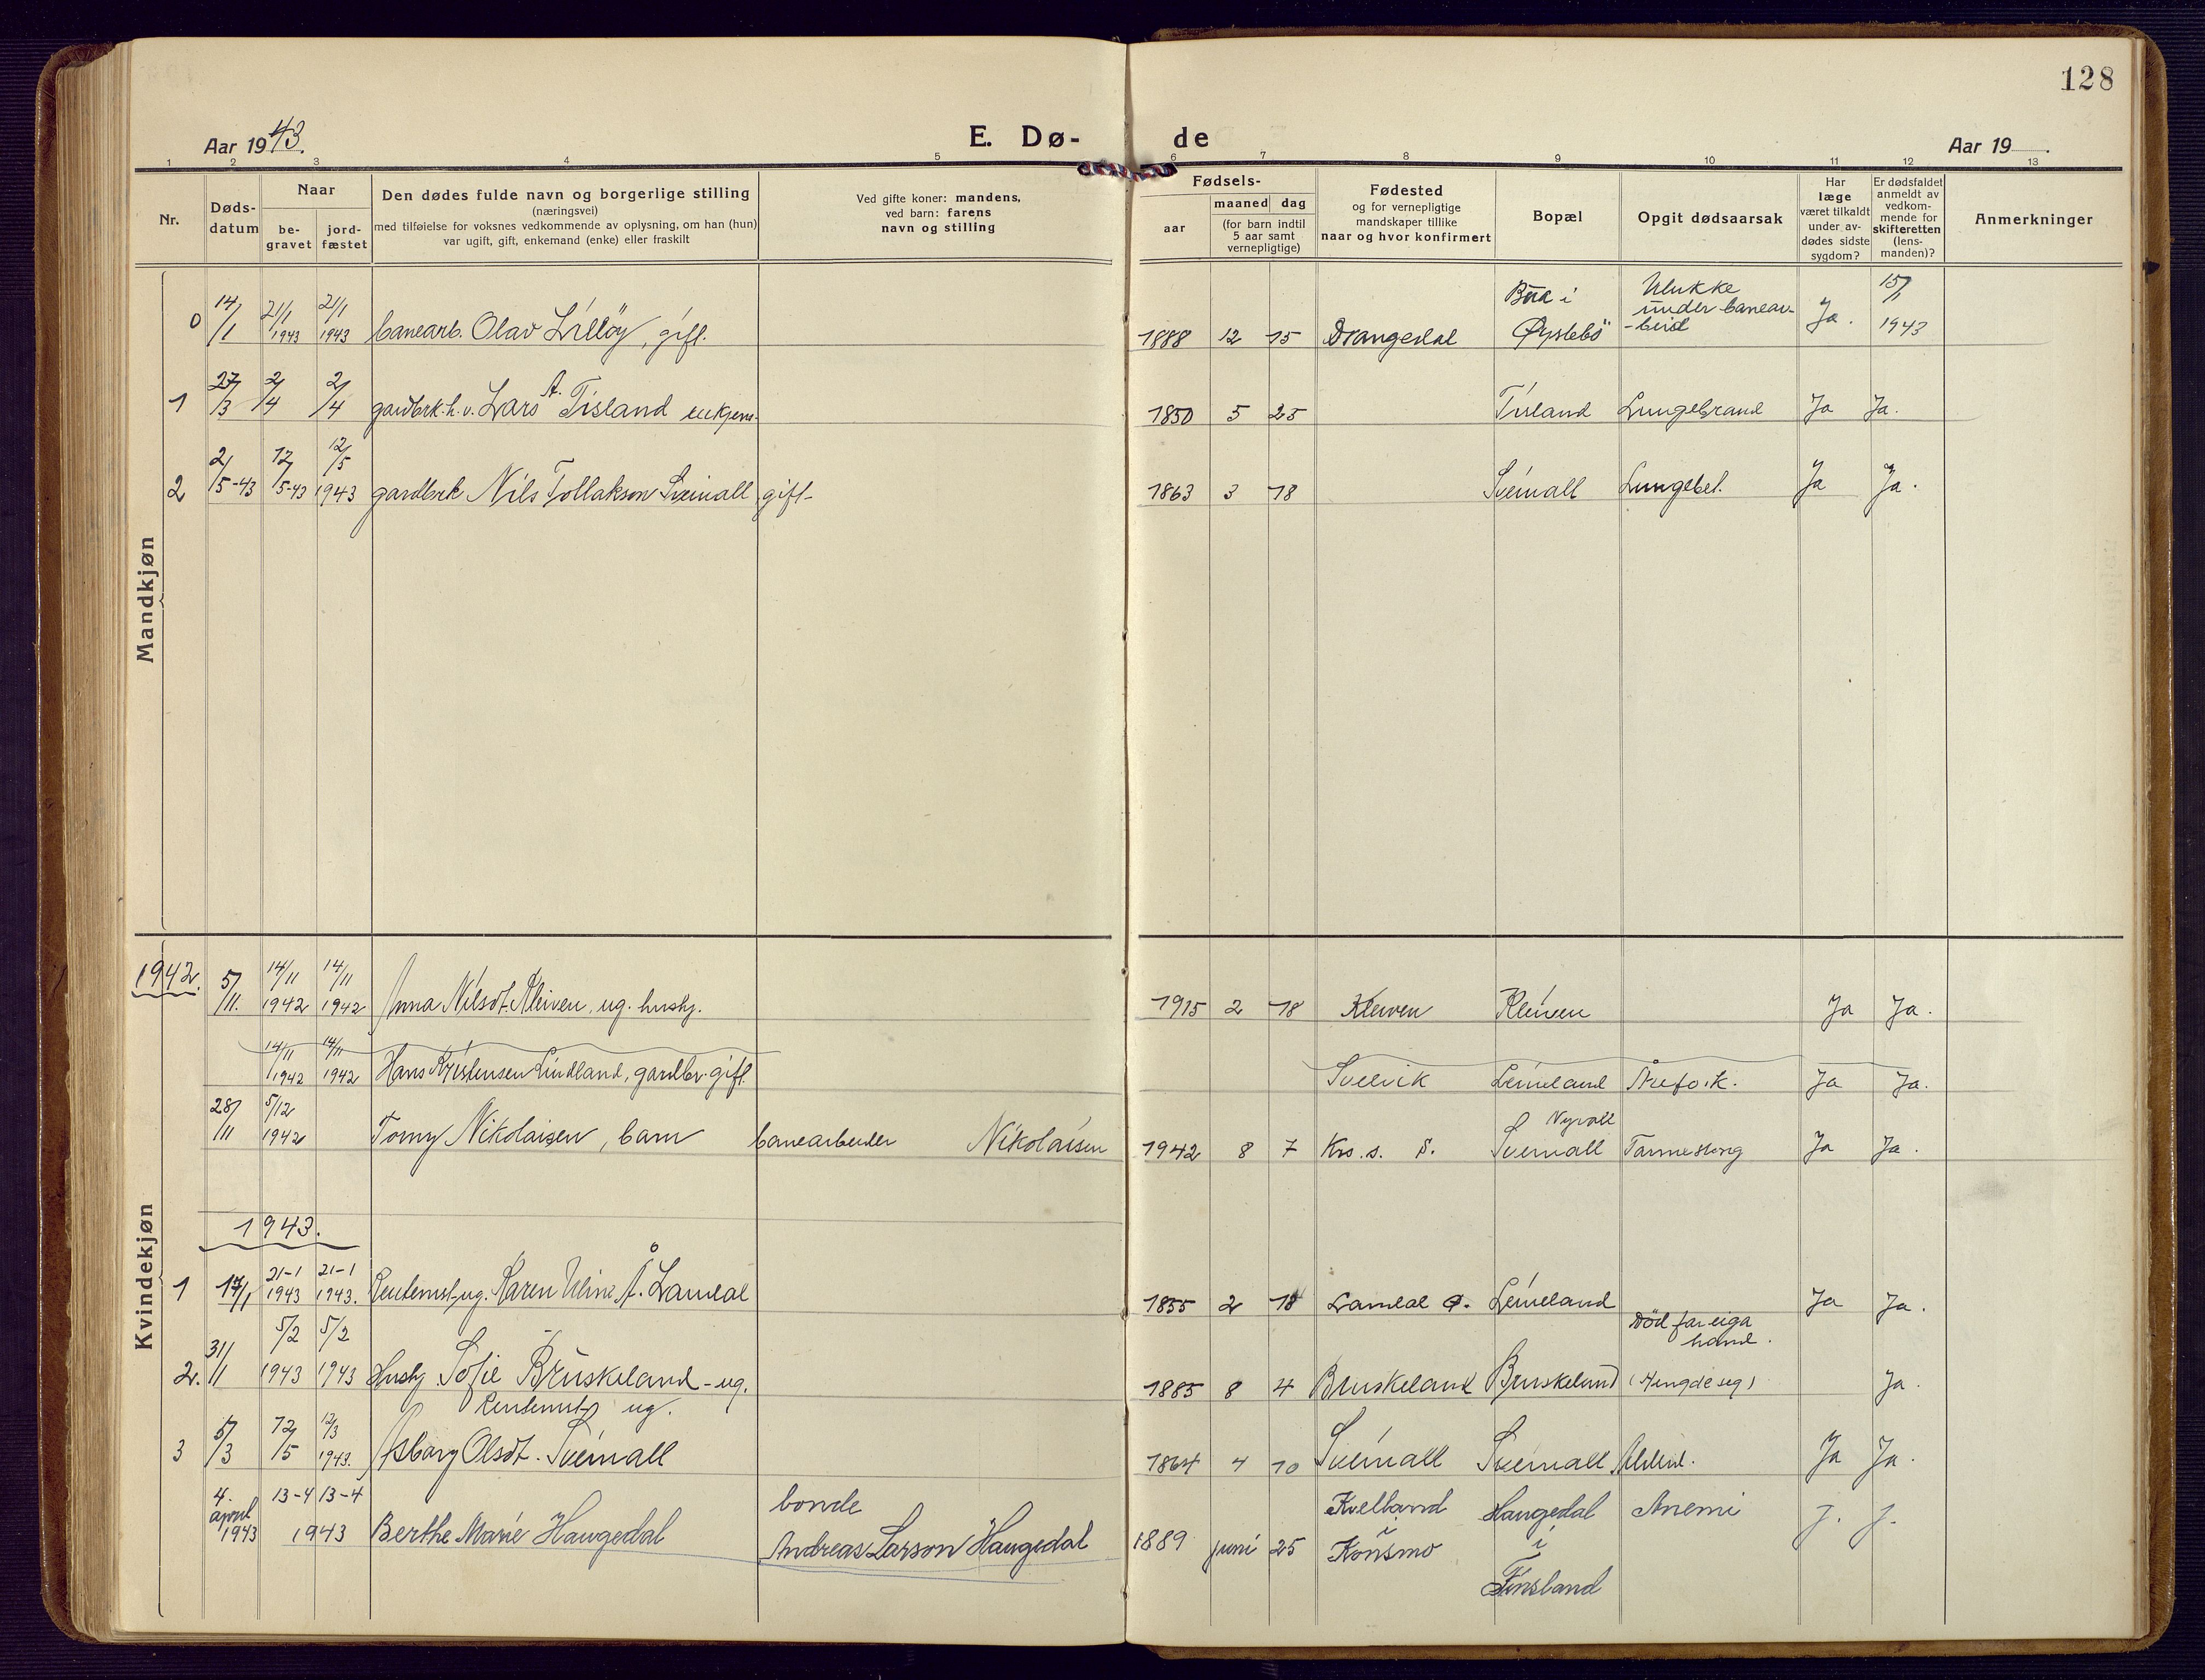 128
Aar 1943.
E. Dø-
de
Aar 19 .
1 2 3 4 5 6 7 8 9 10 11 12 13
Nr.
Døds-
datum
Naar
be-
gravet
jord-
fæstet
Den dødes fulde navn og borgerlige stilling
(næringsvei)
med tilføielse for voksnes vedkommende av oplysning, om han (hun)
var ugift, gift, enkemand (enke) eller fraskilt
Ved gifte koner: mandens,
ved barn: farens
navn og stilling
Fødsels-
aar
maaned dag
(for barn indtil
5 aar samt
vernepligtige)
Fødested
og for vernepligtige
mandskaper tillike
naar og hvor konfirmert
Bopæl
Opgit dødsaarsak
Har
læge
været tilkaldt
under av-
dødes sidste
sygdom?
Er dødsfaldet
anmeldt av
vedkom-
mende for
skifteretten
(lens-
manden)?
Anmerkninger
Mandkjøn
0 14/1 21/1 1943 21/1 1943 banearb. Olav Lilløy, gift. 1888 12 15 Drangedal Øyslebö Ulukke
under banear-
-beid Ja. 15/1
1943
1 27/3 2/4 2/4 gardbrk. h. v. Lars A. Tisland enkjem. 1850 5 25 Tisland Lungebrand Ja Ja.
2 2/5-43 12/5-43 12/5 1943 gardbrk Nils Tollakson Sveinall, gift- 1863 3 18 Sveinall Lungebet. Ja Ja.
Kvindekjøn
1942.
5/11. 14/11 1942 14/11 1942 Anna Nilsdt. Kleiven, ug. hushj. 1915 2 18 Kleiven Kleiven Ja Ja.
14/11 1942 14/11 1942 Hans Kristensen Lindland, gardbr. gift. Svelvik Leineland Ja Ja.
28/11 5/12 1942 Tomy Nikolaisen, barn banearbeider Nikolaisen 1942 8 7 Krs. s. S. Nyvoll
Sveinall Tarmeslyng Ja Ja.
1943.
1 17/1 21-1 1943 21-1 1943. Rentenist, ug. Karen Uline Å. Lamdal 1855 2 18 Lamdal Ø. Leineland Ja Ja.
2. 31/1 5/2 1943 5/2 1943 Hushj. Sofie Brüskeland - ug. 1885 8 4 Bruskeland Bruskeland Död for eiga
hand.
(Hengde seg) Ja.
Rentenist, ug.
3 5/3 12/5 12/3 1943. Asborg Olsdt. Sveinall 1864 4 10 Sveinall Sveinall Ja Ja.
4.
april
1943 13-4 13-4
1943 Berthe Marie Haugedal bonde
Andreas Larson Haugedal 1889 juni 25 Kvelland
Konsmo Haugedal
i
Finsland Anemi J. J.